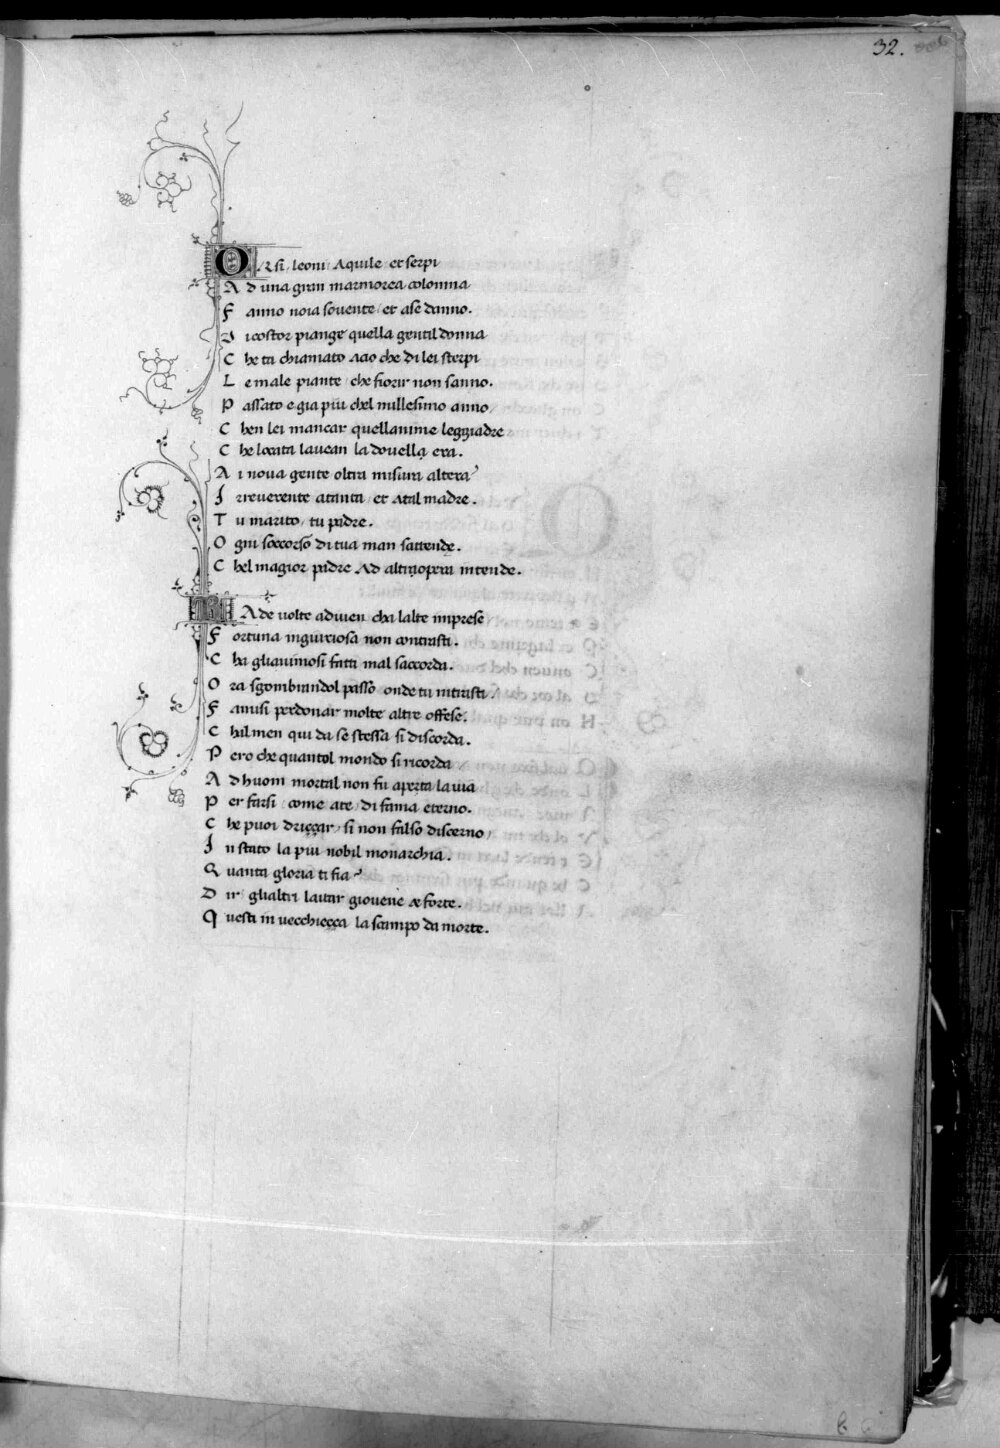 32.
ORsi, leoni, Aquile et serpi
A d una gran marmorea colonna
F anno noia sovente, et ase danno.
D i costor piange quella gentil donna
C he ta chiamato Acio che di lei sterpi
L e male piante, che fiorir non sanno.
P assato e gia piu chel millesimo anno
C hen lei mancar quellanime leggiadre
C he locata lavean la dovella era.
A i nova gente oltra misura altera
I rreverente atanta et Atal madre.
T u marito, tu padre.
O gni soccorso di tua man sattende.
C hel magior padre Ad altropera intende.
RAde volte advien cha lalte imprese
F ortuna ingiuriosa non contrasti.
C ha glianimosi fatti mal saccorda.
O ra sgombrandol passo onde tu intrasti
F amisi perdonar molte altre offese.
C hal men qui da se stessa si discorda.
P ero che quantol mondo si ricorda
A d huom mortal non fu aperta la via
P er farsi, come ate, di fama eterno.
C he puoi driççar, si non falso discerno
I n stato la piu nobil monarchia.
Q uanta gloria ti fia
D ir, glialtri laitar giovene & forte.
Q uesti in vecchieçça la scampo da morte.